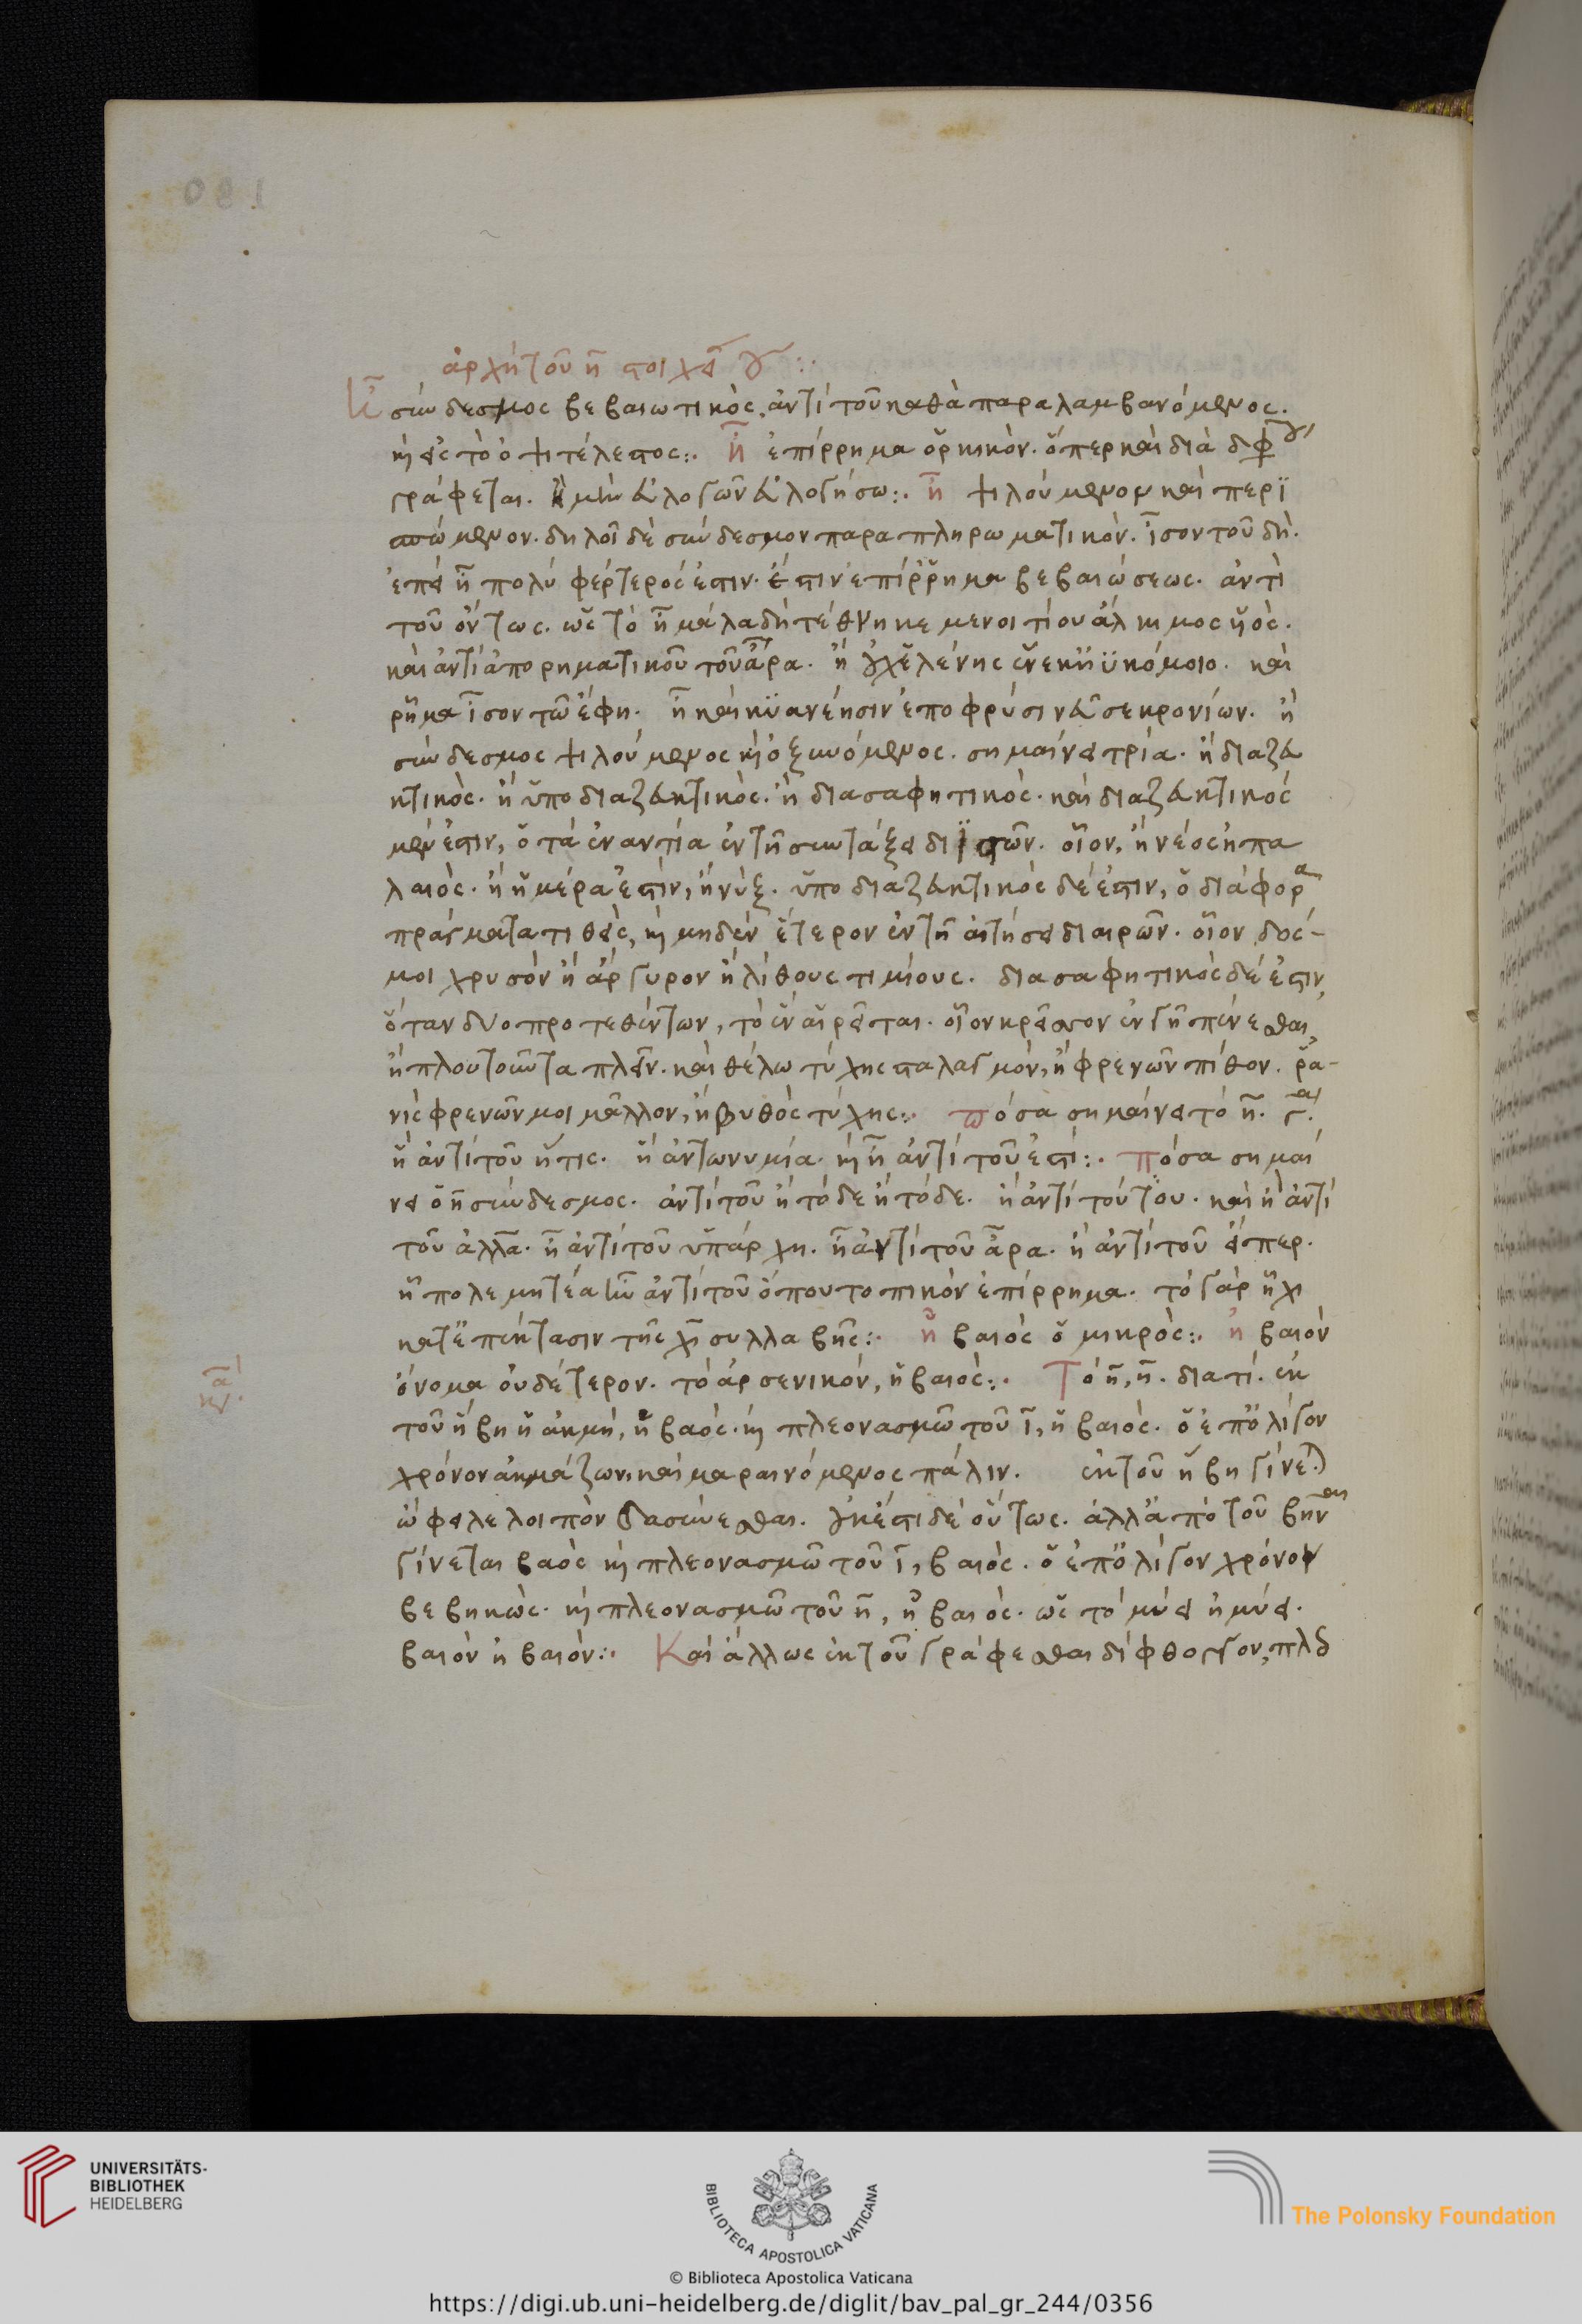 ἀρχὴ τοῦ η̄ στοιχεί
σύνδεσμος βεβαιωτικὸς. ἀντὶ τοῦ καθὰ παραλαμβανόμενος.
καὶ εἰς τὸ ὀψιτέλεστος:. η̄ ἐπίρρημα ὁρκικὸν. ὅπερ καὶ διὰ
γράφεται. ἢ μὴν εὐλογῶν εὐλογήσω:. η̄ ψιλούμενον καὶ περι
σπώμενον. δηλοῖ δὲ σύνδεσμον παραπληρωματικὸν. ἴσον τοῦ δὴ.
ἐπεὶ ἦ πολὺ φέρτερός ἐστιν. ἔστιν ἐπίρρημα βεβαιώσεως. ἀντὶ
τοῦ ὄντως. ὡς τὸ ἦ μάλα δὴ τέθνηκε μενοιτίου ἄλκιμος υἱὸς.
καὶ ἀντὶ ἀπορηματικοῦ τοῦ ἆρα. ἢ οὐχ ἑλένης ἕνεκ' ἠϋκόμοιο. καὶ
ῥῆμα ἴσον τῶ ἔφη. ἦ καὶ κυανέησιν ἐπ' ὀφρύσι νεῦσε κρονίων. ἢ
σύνδεσμος ψιλούμενος καὶ ὀξυνόμενος. σημαίνει τρία. ἢ διαζευ
κτικὸς. ἢ ὑποδιαζευκτικὸς. ἢ διασαφητικὸς. καὶ διαζευκτικός
μέν ἐστιν, ὁ τὰ ἐναντία ἐν τῇ συντάξει διϊστῶν. οἷον, ἢ νέος ἢ πα
λαιὸς. ἢ ἡμέρα ἐστὶν, ἢ νύξ. ὑποδιαζευκτικὸς δέ ἐστιν, ὁ διάφορα
πράγματα τιθεὶς, καὶ μηδὲν ἕτερον ἐν τῇ αἰτήσει διαιρῶν. οἷον δός-
μοι χρυσὸν ἢ ἄργυρον ἢ λίθους τιμίους. διασαφητικὸς δέ ἐστιν,
ὅταν δύο προτεθέντων, τὸ ἓν αἱρεῖται. οἷον κρεῖσσον ἐν γῇ πένεσθαι,
ἢ πλουτοῦντα πλεῖν. καὶ θέλω τύχης σταλαγμὸν, ἢ φρενῶν πίθον. ῥα-
νὶς φρενῶν μοι μᾶλλον, ἢ βυθὸς τύχης:. πόσα σημαίνει τὸ η̄.
ἢ ἀντὶ τοῦ ἥτις. ἡ ἀντωνυμία. καὶ η̄ ἀντὶ τοῦ ἐστί:. πόσα σημαί
νει ὁ η̄ σύνδεσμος. ἀντὶ τοῦ ἢ τόδε ἢ τόδε. ἢ ἀντὶ τούτου. καὶ ἢ ἀντὶ
τοῦ ἀλλὰ. ἢ ἀντὶ τοῦ ὑπάρχη. ἢ ἀντὶ τοῦ ἆρα. ἢ ἀντὶ τοῦ εἴπερ.
ἢ πολεμητέα ἀντὶ τοῦ ὅπου τοπικὸν ἐπίρρημα. τὸ γὰρ ἧχι
κατ' ἐπέκτασιν τῆς χῑ συλλαβῆς:. ἠβαιὸς ὁ μικρὸς:. ἠβαιὸν
ὄνομα οὐδέτερον. τὸ ἀρσενικόν, ἠβαιὸς:. Τὸ η̄, η̄. διατί. ἐκ
τοῦ ἥβη ἡ ἀκμὴ, ἡβαὸς. καὶ πλεονασμῶ τοῦ ῑ, ἡβαιὸς. ὁ ἐπ' ὀλίγον
χρόνον ἀκμάζων, καὶ μαραινόμενος πάλιν. ἐκ τοῦ ἥβη γίνεται
ὤφειλε λοιπὸν δασύνεσθαι. οὐκ ἔστι δὲ οὕτως. ἀλλ' ἀπὸ τοῦ βῆναι
γίνεται βαὸς καὶ πλεονασμῶ τοῦ ῑ, βαιὸς. ὁ ἐπ' ὀλίγον χρόνον
βεβηκὼς. καὶ πλεονασμῶ τοῦ η̄, ἠβαιὸς. ὡς τὸ μύει ἠμύει.
βαιὸν ἠβαιὸν:. Καὶ ἄλλως ἐκ τοῦ γράφεσθαι δίφθογγον,
UNIVERSITÄTS-
BIBLIOTHEK
HEIDELBERG
BIBLIOTECA APOSTOLICA VATICANA
The Polonsky Foundation
© Biblioteca Apostolica Vaticana
https://digi.ub.uni-heidelberg.de/diglit/bav_pal_gr_244/0356